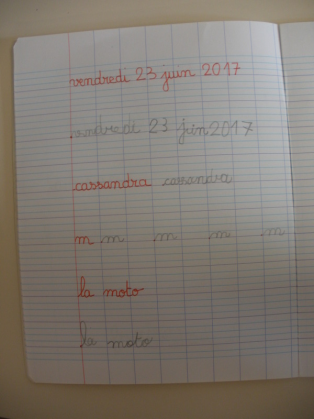 vendredi 23 juin 2017
vendredi 23 juin 2017
cassandra cassandra
m m m m m
la moto
la moto